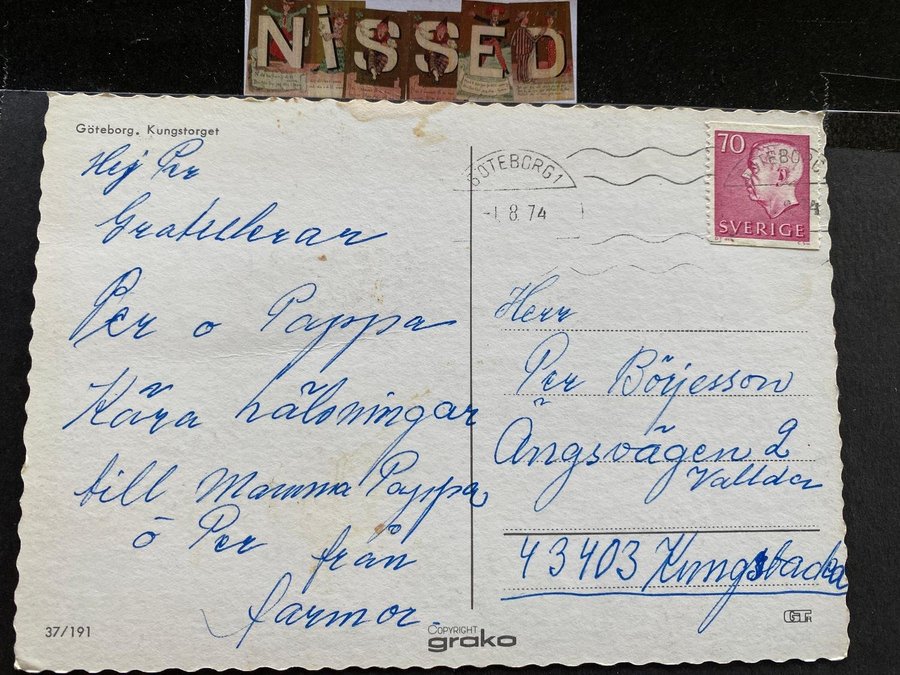 NiSSED
Göteborg. Kungstorget
Hej Per
Gratulerar
Per o Pappa
Kära hälsningar
till Mamma Pappa
o Per från
farmor.
37/191
COPYRIGHT
grako
GÖTEBORG 1
-1.8.74
70
SVERIGE
GÖTEBORG
4
Herr
Per Börjesson
Ängsvägen 2
Vallda
43403 Kungsbacka